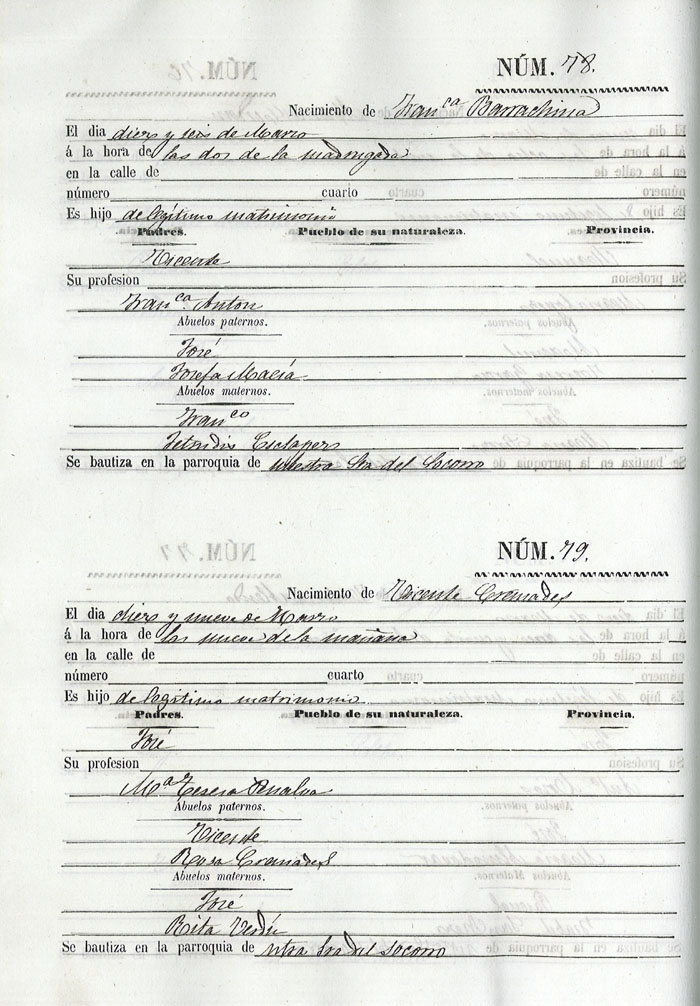 NÚM. 78.
Nacimiento de Fran.ca Barrachina
El dia diez y seis de Marzo
á la hora de las dos de la madrugada
en la calle de
número cuarto
Es hijo de legitimo matrimonio
Padres. Pueblo de su naturaleza. Provincia.
Vicente
Su profesion
Fran.ca Anton
Abuelos paternos.
José
Josefa Maciá
Abuelos maternos.
Fran.co
Esclapez
Se bautiza en la parroquia de nuestra Sra del Socorro
NÚM. 79.
Nacimiento de Vicente Cremades
El dia diez y nueve de Marzo
á la hora de las nueve de la mañana
en la calle de
número cuarto
Es hijo de legitimo matrimonio
Padres. Pueblo de su naturaleza. Provincia.
José
Su profesion
Ma Teresa Penalva
Abuelos paternos.
Vicente
Rosa Cremades
Abuelos maternos.
José
Rita Verdú
Se bautiza en la parroquia de ntra Sra del Socorro